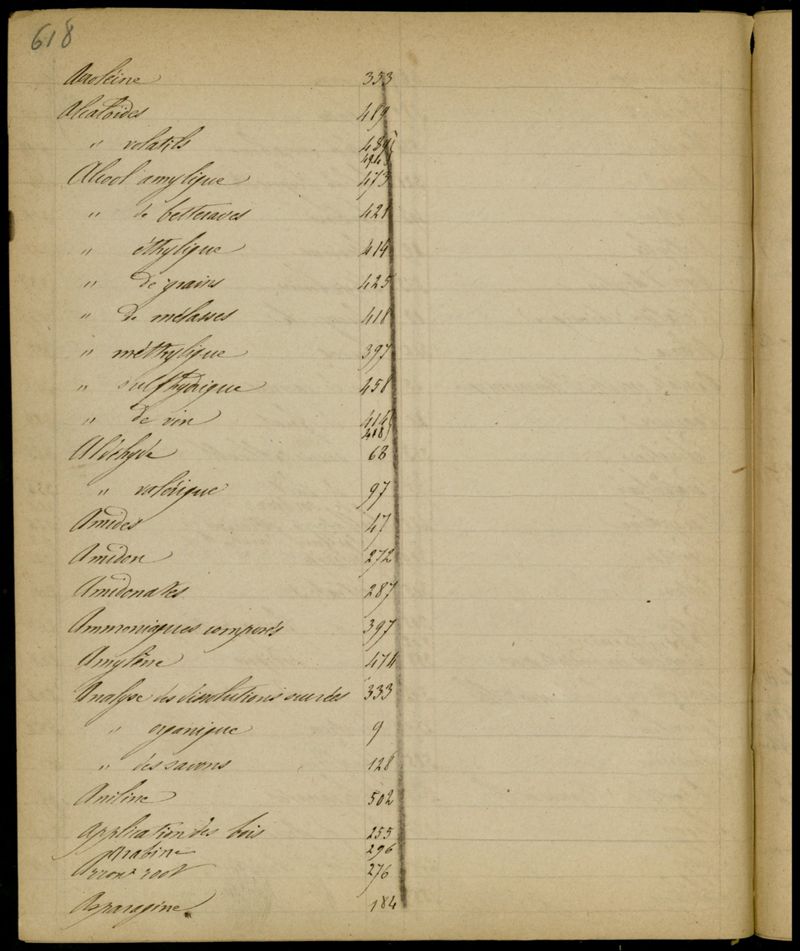 618
Acroléine 353
Alcaloïdes 489
" volatils 489
494
Alcool amylique 473
" de betteraves 421
" éthylique 414
" de grains 425
" de mélasses 418
" méthylique 397
" sulfhydrique 458
" de vin 414
418
Aldéhyde 68
" valérique 97
Amides 47
Amidon 272
Amidonates 287
Ammoniaques composés 397
Amylène 474
Analyse des dissolutions sucrées 333
" organique 9
" des savons 128
Aniline 502
Application des bois 255
Arabine 296
Arrow root 276
Asparagine 184